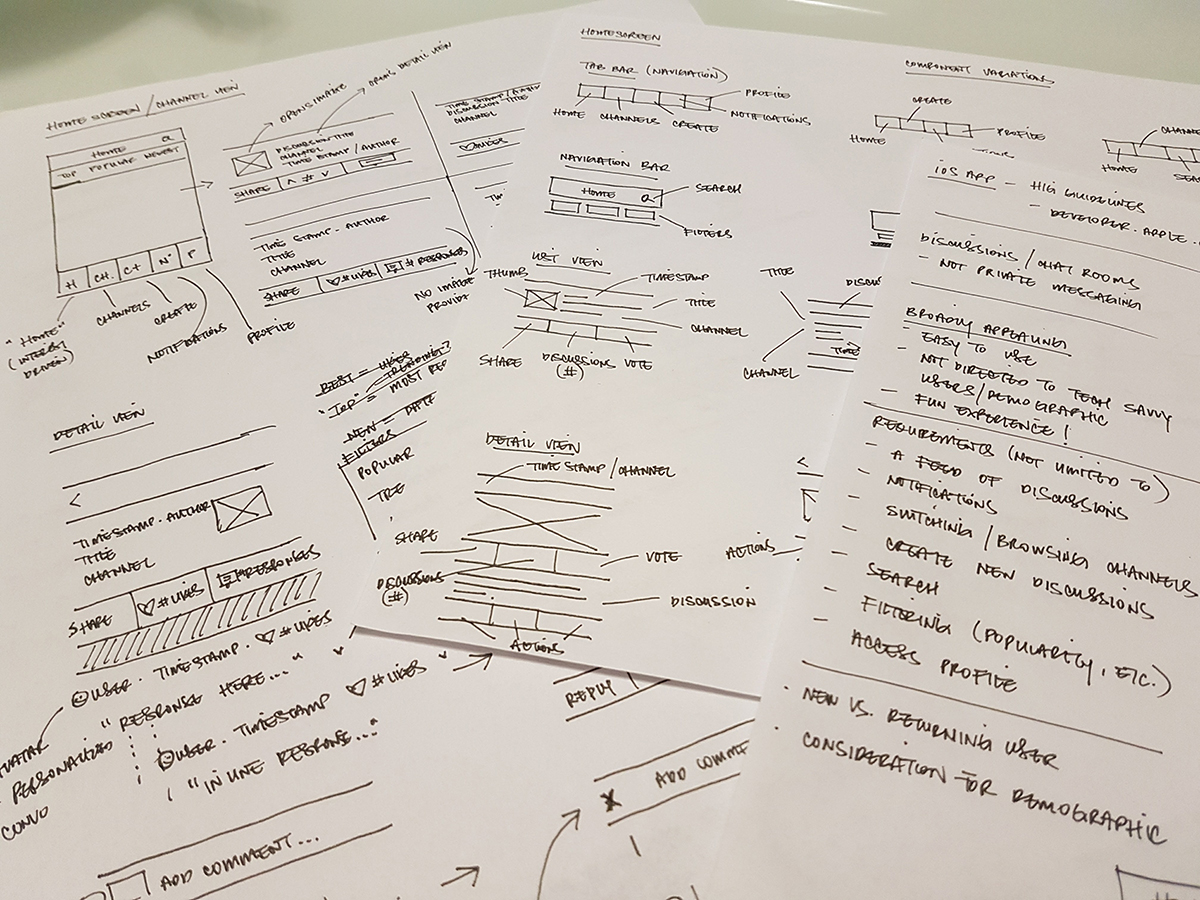 HOME SCREEN / CHANNEL VIEW
HOME
TOP POPULAR NEWEST
H CH. C+ N' P
"HOME"
(INTEREST
DRIVEN)
CHANNELS
CREATE
NOTIFICATIONS
PROFILE
OPENS IMAGE
OPENS DETAIL VIEW
DISCUSSION TITLE
CHANNEL
TIME STAMP / AUTHOR
SHARE ^ # v
TIME STAMP · AUTHOR
TITLE
CHANNEL
SHARE ♡ # LIKES # RESPONSES
DISCUSSION TITLE
CHANNEL
♡ LIKES
NO IMAGE
BEST = LIKES
"TOP" = MOST
TRENDING?
NEW = DATE
FILTERS
POPULAR
DETAIL VIEW
<
TIMESTAMP · AUTHOR
TITLE
CHANNEL
SHARE ♡ # LIKES # RESPONSES
USER · TIMESTAMP · ♡ # LIKES
"RESPONSE HERE..."
USER · TIMESTAMP ♡ # LIKES
"IN LINE RESPONSE..."
PERSONALIZED
CONVO
ADD COMMENT...
HOMESCREEN
TAB BAR (NAVIGATION)
HOME CHANNELS CREATE NOTIFICATIONS PROFILE
NAVIGATION BAR
HOME
SEARCH
FILTERS
LIST VIEW
THUMB
TIMESTAMP
TITLE
CHANNEL
SHARE DISCUSSIONS VOTE
(#)
DETAIL VIEW
TIME STAMP / CHANNEL
SHARE
VOTE
DISCUSSIONS
(#)
DISCUSSION
ACTIONS
REPLY
X ADD
COMPONENT VARIATIONS
CREATE
HOME
PROFILE
HOME
TITLE
CHANNEL
TIME
ACTIONS
iOS APP - HIG GUIDELINES
- DEVELOPER.APPLE...
DISCUSSIONS / CHAT ROOMS
- NOT PRIVATE MESSAGING
BROADLY APPEALING
- EASY TO USE
- NOT DIRECTED TO TECH SAVVY
USERS/DEMOGRAPHIC
- FUN EXPERIENCE!
REQUIREMENTS (NOT LIMITED TO)
- A FEED OF DISCUSSIONS
- NOTIFICATIONS
- SWITCHING / BROWSING CHANNELS
- CREATE NEW DISCUSSIONS
- SEARCH
- FILTERING (POPULARITY, ETC.)
- ACCESS PROFILE
· NEW VS. RETURNING USER
· CONSIDERATION FOR DEMOGRAPHIC